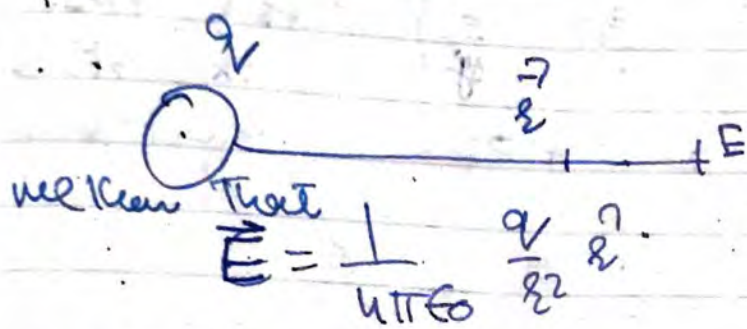 q
r⃗
E
we know That
E⃗ = 1/4πϵ₀ q/r² r̂.